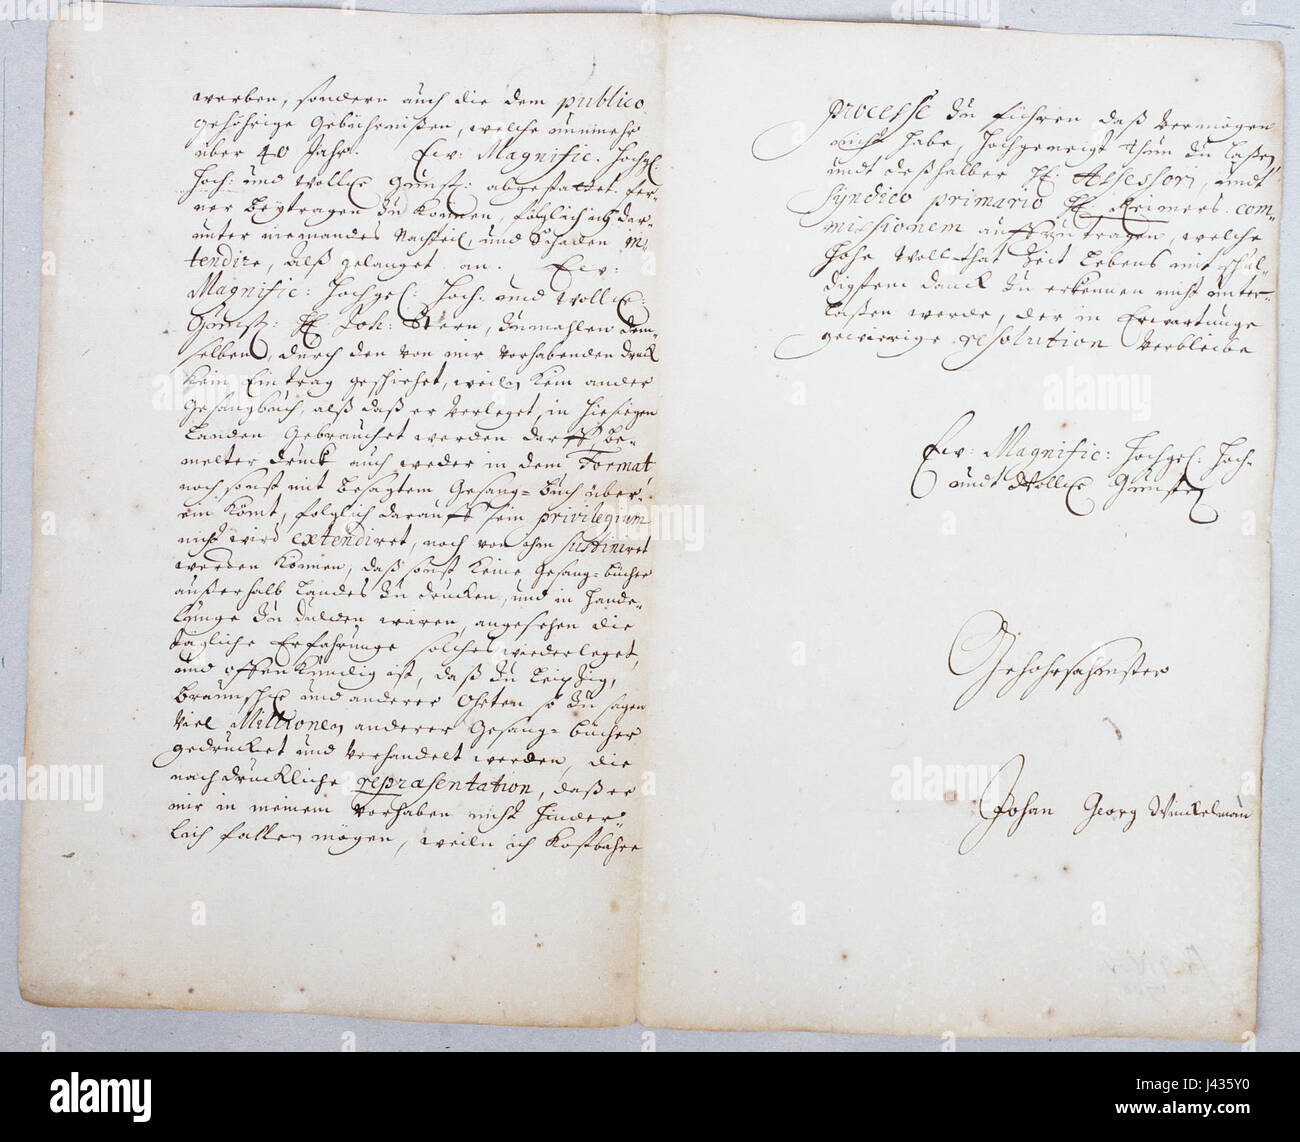 werben, sondern auch die dem publico
gehöhrige Gebüchrnißen, welche nunmehr
über 40 Jahr. Ew: Magnific. Hochgel:
Hoch: und Wollw: Gunst: abgestattet. fer-
ner beytragen zu können, folglich ich dar-
unter niemandes Nachteil, und Schaden in-
tendire, alß gelanget an. Ew:
Magnific: Hochgel: Hoch: und Wollw:
Gunst: H: Joh: Stern, zumahlen dem-
selben, durch den von mir vorhabenden druck
kein Eintrag geschiehet, weiln kein ander
Gesangbuch, alß daß er verleget, in hiesigen
Landen gebrauchet werden darff, be-
melter druck auch weder in dem Format
noch sonst mit besagtem Gesang-buch über-
ein kömt, folglich darauff sein privilegium
nicht wird extendiret, noch von ihm sustiniret
werden können, daß sonst keine Gesang-bücher
außerhalb Landes zu drucken, und in Hande-
lunge zu dulden wären, angesehen die
tägliche Erfahrunge solches wiederleget,
und offenkündig ist, daß zu Leipzig,
Braunschw: und anderer Ohrten so zu sagen
viel Millionen anderer Gesang-bücher
gedrucket und verhandelt werden, die
nachdruckliche repræsentation, daß er
mir in meinem Vorhaben nicht hinder-
lich fallen mögen, weiln ich kostbahre
processe zu führen daß vermögen
nicht habe, Hochgeneigt thun zu laßen,
undt deßhalber H: Assessori, undt
Syndico primario H: Reimers com-
missionem auffzutragen, welche
hohe Wollthat Zeit Lebens mit schul-
digstem danck zu erkennen nicht unter-
laßen werde, der in Erwartunge
gewierige resolution verbleibe
Ew: Magnific: Hochgel: Hoch-
undt Wollw: Gunsten
Gehohrsahmster
Johan Georg Winckelman
alamy
Image ID: J435Y0
www.alamy.com